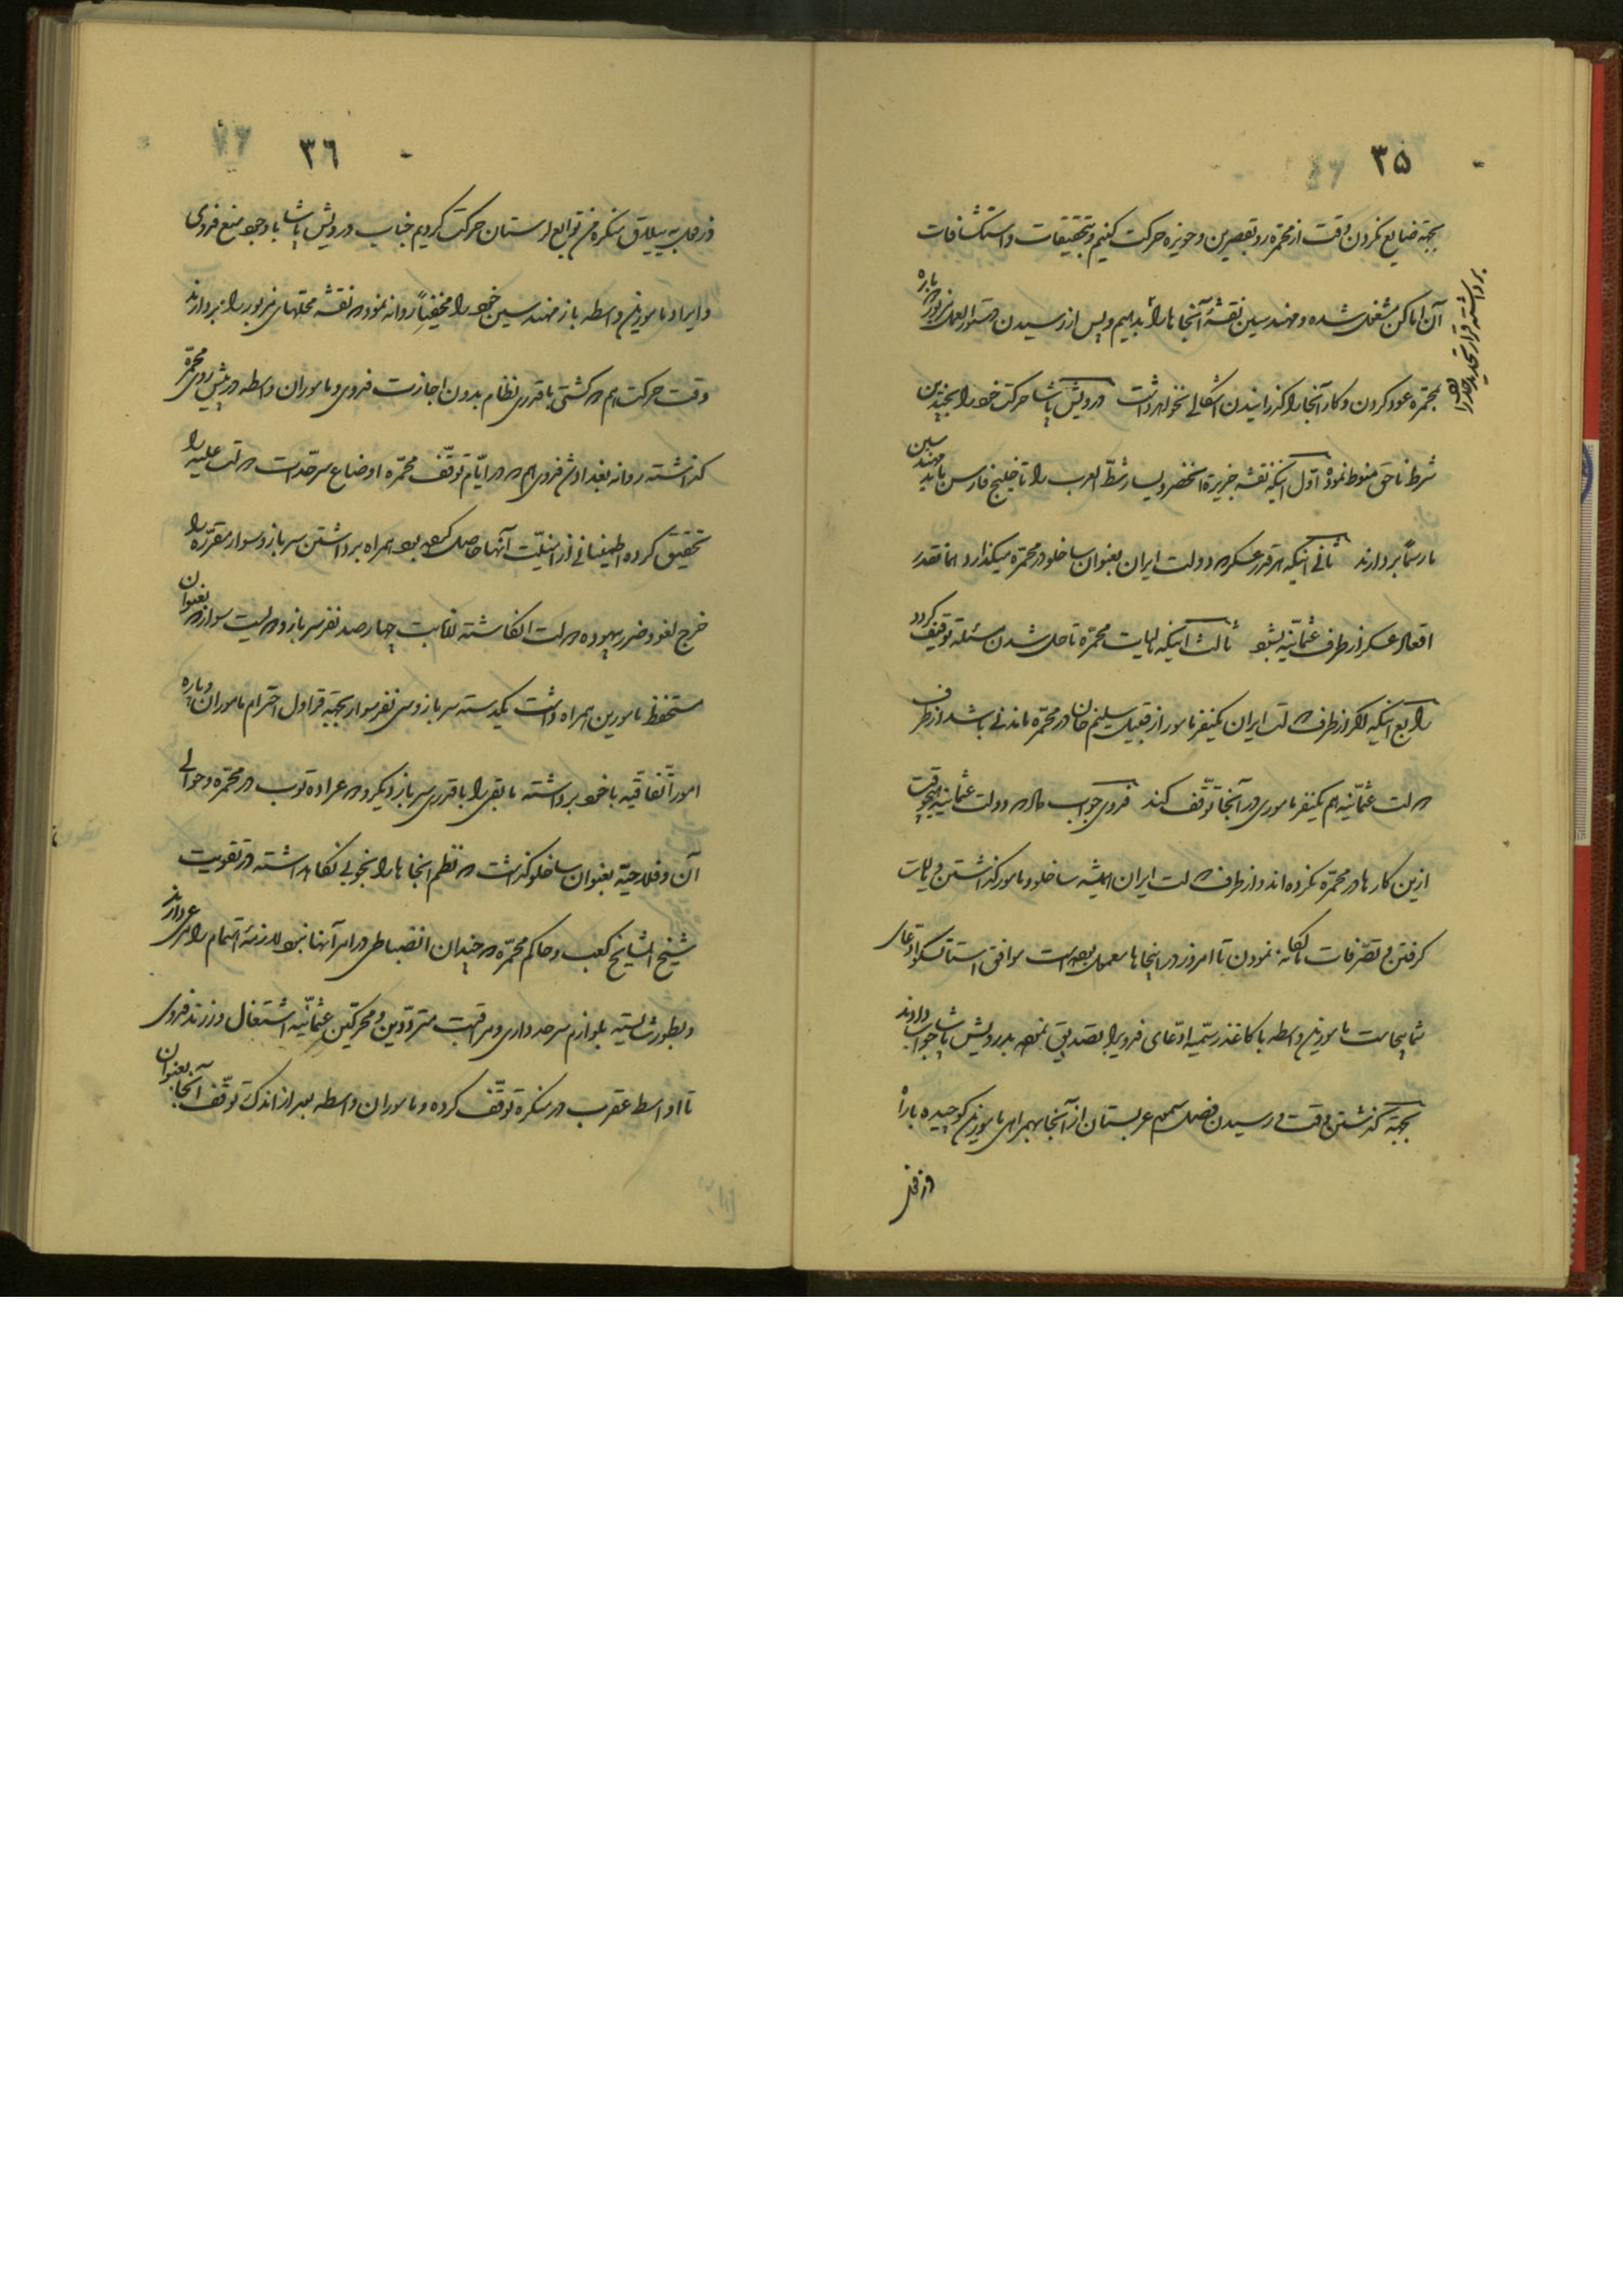 ۳۵
بجهة ضایع نکردن وقت از محمّره رو بقصرین و حویزه حرکت کنیم و بتحقیقات و استکشافات
آن اماکن مشغول شده و مهندسین نقشهٔ آنجاها را بدهیم و پس از رسیدن دستورالعمل دوباره
برداشته قرار تحدید حدود را
بمحمّره عود کردن و کار آنجا را گذرانیدن اشکالی نخواهد داشت درویش پاشا حرکت خود را بچندین
شرط ناحق منوط نمود اوّل اینکه نقشه جزیرة الخضر و یسار شطّ العرب را تا خلیج فارس باید مهندسین
بردارند ثانی اینکه هر قدر عسکر که دولت ایران بعنوان ساخلو در محمّره میگذارد همانقدر
اقعاد عسکر از طرف عثمانیّه بشود ثالث اینکه مالیات محمّره تا حل شدن مسئله توقیف گردد
رابع اینکه اگر از طرف دولت ایران یکنفر مامور از قبیل سلیم خان در محمّره ماندنی باشد از طرف
دولت عثمانیّه هم یکنفر ماموری در آنجا توقّف کند فدوی جواب داد که دولت عثمانیه هیچوقت
ازین کارها در محمّره نکرده‌اند و از طرف دولت ایران همیشه ساخلو و مامور گذاشتن و مالیات
گرفتن و تصرّفات مالکانه نمودن تا امروز در اینجاها معمول بوده است موافق استاتسکو ادّعای
شما بیجاست مامورین واسطه با کاغذ رسمیّه ادّعای فدویرا تصدیق نموده بدرویش پاشا جواب دادند
بجهة گذشتن وقت و رسیدن فصل سموم عربستان از آنجا بهمراهی مامورین کوچیده باراه
دزفول
۳٦
دزفول به ییلاق منگره من توابع لرستان حرکت کردیم جناب درویش پاشا با وجود منع فدوی
و ایراد مامورین واسطه باز مهندسین خود را مخفیاً روانه نمود که نقشه محلهای مزبور را بردارند
وقت حرکت هم که کشتی با قدری نظام بدون اجازت فدوی و ماموران واسطه در پیش روی محمّره
گذاشته روانه بغداد شد فدوی هم که در ایّام توقّف محمّره اوضاع سرحدّات دولت علیه را
تحقیق کرده اطمینانی از امنیّت آنها حاصل کرده بود همراه برداشتن سرباز و سوار مقرّره را
خرج لغو و ضرر بیهوده دولت انگاشته چهارصد نفر سرباز و دویست سوار که بعنوان
مستحفظ مامورین همراه داشت یکدسته سرباز و سی نفر سوار بجهة قراول احترام ماموران و پاره
امور اتّفاقیه با خود برداشته مابقی را با قدری سرباز دیگر و دو عراده توپ در محمّره و حوالی
آن و فلاحیّه بعنوان ساخلو گذاشت که نظم آنجاها را بخوبی نگاهداشته در تقویت
شیخ المشایخ کعب و حاکم محمّره که چندان انضباطی در امر آنها نبود لازمهٔ اهتمام را مرعی دارند
و بطور شایسته بلوازم سرحدداری و مراقبت متردّدین و محرّکین عثمانیّه اشتغال ورزند فدوی
تا اواسط عقرب در منگره توقّف کرده و ماموران واسطه بعد از اندک توقّف آنجا بعنوان